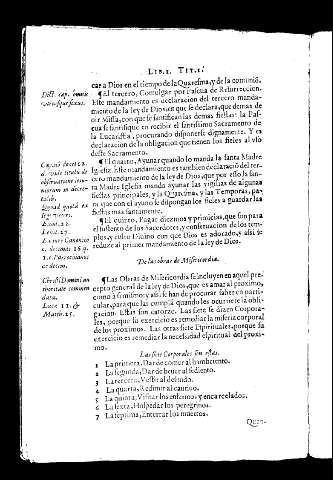 LIB.I. TIT.I.
car a Dios en el tiempo de la Quaresma, y de la comuniõ.
¶El tercero, Comulgar por Pascua de Resurreccion.
Este mandamiento es declaracion del tercero manda-
miento de la ley de Dios, en que se declara, que demas de
oir Missa, con que se santifican las demas fiestas: la Pas-
cua se santifique en recibir el santissimo Sacramento de
la Eucaristia, procurando disponerse dignamente. Y es
declaracion de la obligacion que tienen los fieles al vso
deste Sacramento.
¶El quarto, Ayunar quando lo manda la santa Madre
Iglesia. Este mandamiento es tambien declaraciõ del ter-
cero mandamiento de la ley de Dios, que por esso la san-
ta Madre Iglesia manda ayunar las vigilias de algunas
fiestas principales, y la Quaresma, y las Temporas, pa-
ra que con el ayuno se dispongan los fieles a guardar las
fiestas mas santamente.
¶El quinto, Pagar diezmos y primicias, que son para
el sustento de los Sacerdotes, y conseruacion de los tem-
plos, y culto Diuino con que Dios es adorado, y assi se
reduze al primer mandamiento de la ley de Dios.
De las obras de Misericordia.
¶Las Obras de Misericordia se incluyen en aquel pre-
cepto general de la ley de Dios, que es amar al proximo,
como a si mismo: y assi se han de procurar saber en parti-
cular, para que las cumplã quando les ocurriere la obli-
gacion. Estas son catorze. Las siete se dizen Corpora-
les, porque su exercicio es remediar la miseria corporal
de los proximos. Las otras siete Espirituales, porque su
exercicio es remediar la necessidad espiritual del proxi-
mo.
Las siete Corporales son estas.
1 La primera, Dar de comer al hambriento.
2 La segunda, Dar de beuer al sediento.
3 La tercera, Vestir al desnudo.
4 La quarta, Redimir al cautiuo.
5 La quinta, Visitar los enfermos y encarcelados.
6 La sexta, Hospedar los peregrinos.
7 La septima, Enterrar los muertos.
Dict. cap. omnis
vtriusque sexus.
Capitul. decet 12.
d. vide titulo de
obseruatione ieiu-
niorum in decre-
talib.
Exod. 22.
Leuit. 27.
Et iure Canonico
c. decimas 16. q.
1. c. Parrochianos
de decim.
Christi Domini au
thoritate commen
data.
Lucæ 11. &
Matth. 25.